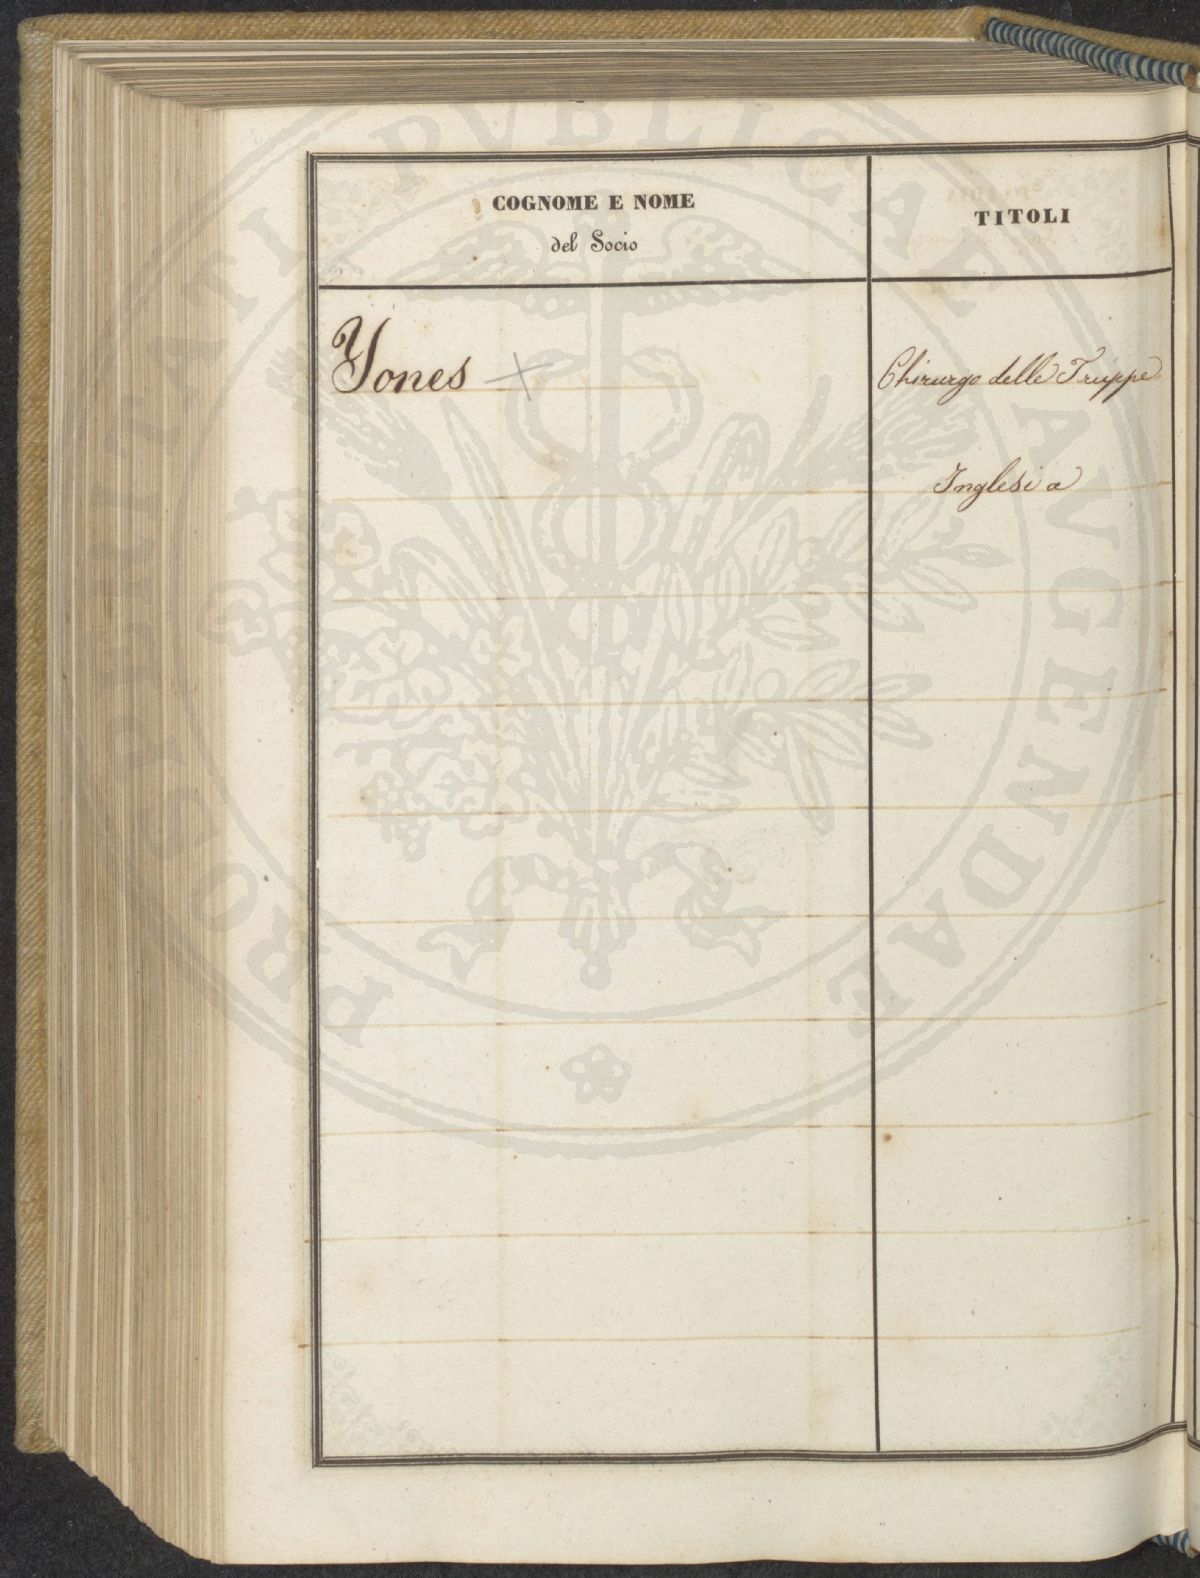 COGNOME E NOME
del Socio
TITOLI
Yones ×
Chirurgo delle Truppe
Inglesi a
PROSPERITATI PVBLICAE AVGENDAE